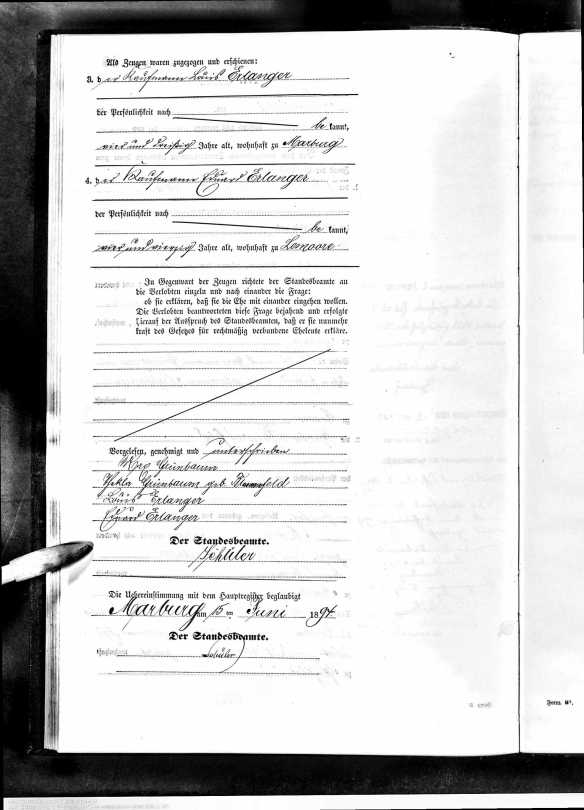 Als Zeugen waren zugezogen und erschienen:
3. der Kaufmann Louis Erlanger
der Persönlichkeit nach
be kannt,
vier und dreißig Jahre alt, wohnhaft zu Marburg
4. der Kaufmann Eduard Erlanger
der Persönlichkeit nach
be kannt,
vier und vierzig Jahre alt, wohnhaft zu
In Gegenwart der Zeugen richtete der Standesbeamte an
die Verlobten einzeln und nach einander die Frage:
ob sie erklären, daß sie die Ehe mit einander eingehen wollen.
Die Verlobten beantworteten diese Frage bejahend und erfolgte
hierauf der Ausspruch des Standesbeamten, daß er sie nunmehr
kraft des Gesetzes für rechtmäßig verbundene Eheleute erkläre.
Vorgelesen, genehmigt und unterschrieben
Grünbaum
Hekla Grünbaum geb. Blumenfeld
Louis Erlanger
Eduard Erlanger
Der Standesbeamte.
Die Uebereinstimmung mit dem Hauptregister beglaubigt
Marburg am 15 ten Juni 1894
Der Standesbeamte.
Schüler
Form. B